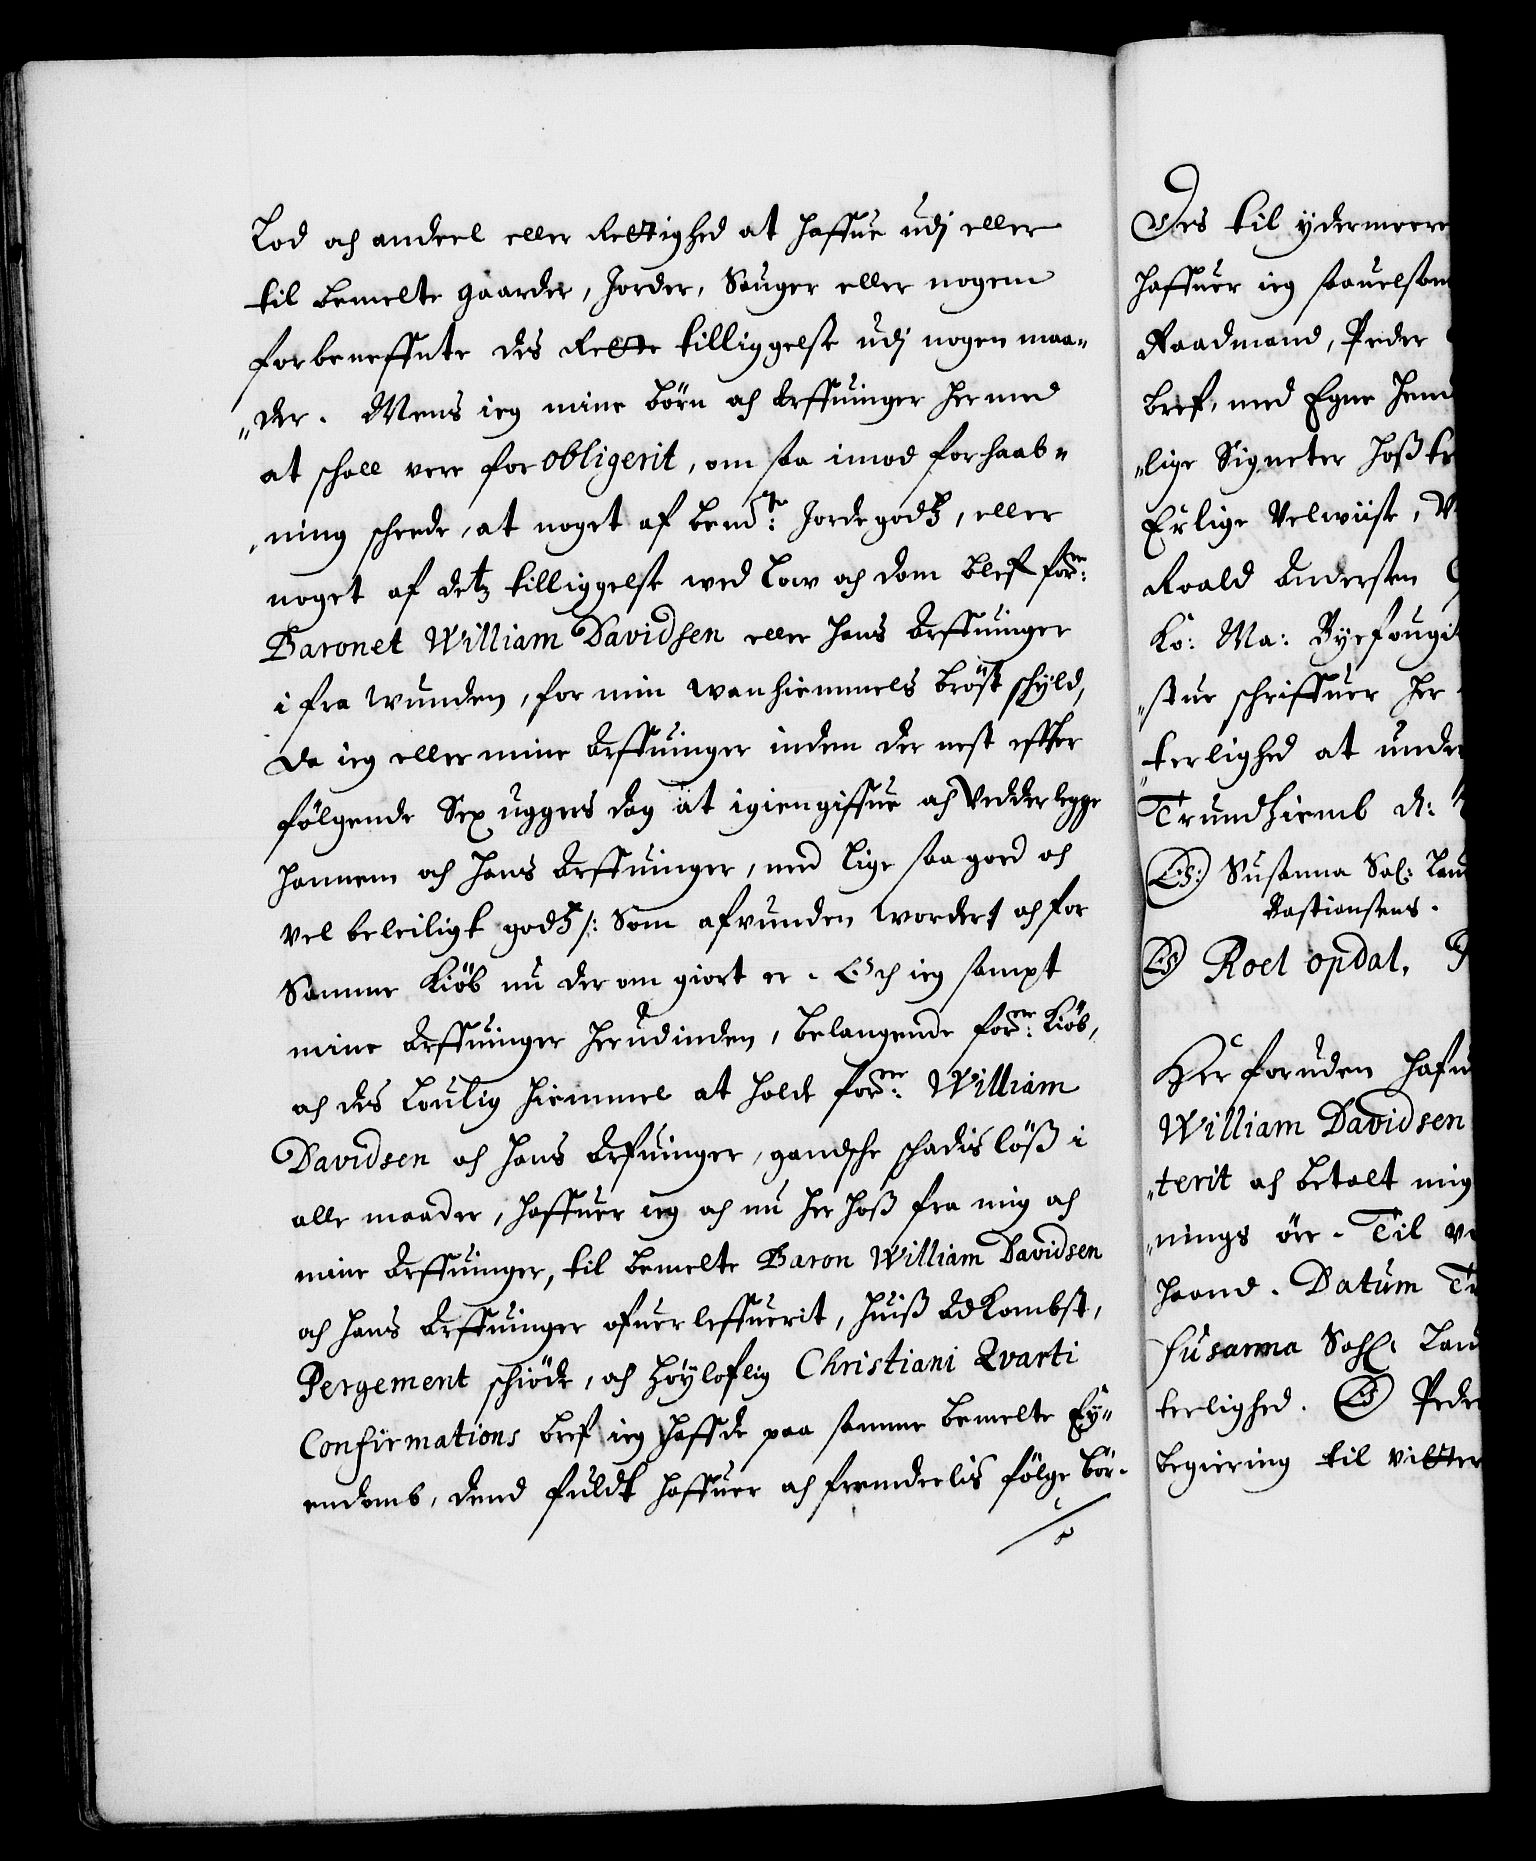 Lod och andeel eller Rettighed at haffue udj eller
til bemelte gaarder, Jorder, Sauger eller nogen
forbeneffnte des Rette tilliggelse udj nogen maa„
„der. Mens ieg mine börn och Arffuinger her med
at schall vere for obligerit, om saa imod forhaab„
„ning scheede, at noget af bemd^te: Jordegodtz, eller
noget af detz tilliggelse wed Low och dom bleff for^ne:
Baronet William Davidsen eller hans Arffuinger
i fra wunden, for min wanhiemmels bröst schyld,
Da ieg eller mine Arffuinger inden der nest effter
fölgende Sex uggers dag at igiengiffue och Vedderlegge
hannem och hans Arffuinger, med lige saa goed och
vel beleiligt godtz /: Som afvunden wordet och for
Samme Kiöb nu der om giort er. Och ieg sampt
mine Arffuinger herudinden, belangende for^ne: Kiöb,
och des Loulig hiemmel at holde for^ne: William
Davidsen och hans Arfuinger, gandsche schadislöß i
alle maader, haffuer ieg och nu her hoß fra mig och
mine Arffuinger, til bemelte Baron William Davidsen
och hans Arffuinger ofuerleffuerit, huiß AdKombst,
Pergement schiöde, och höyloflig Christiani Qvarti
Confirmations bref ieg haffde paa samme bemelte Ey„
endomb, dend fuldt haffuer och fremdeelis fölge bör.
Des til ydermeere
haffuer ieg saauelsom
Raadmand, Peder
bref, med Egne hend
„lige Signeter hoß
Erlige Velwiise,
Roald Andersen
Ko: Ma: Byefougit
„stue schriffuer her
„terlighed at unde
Trundhiemb d:
LS: Susanna Sal: Lau
Bastiansens.
LS Roel opdal,
Her foruden hafu
William Davidsen
„terit och betalt mig
„nings öre. Til
haand. Datum
Susanna Sahl: Lau
terlighed. LS Peder
begiering til vitter